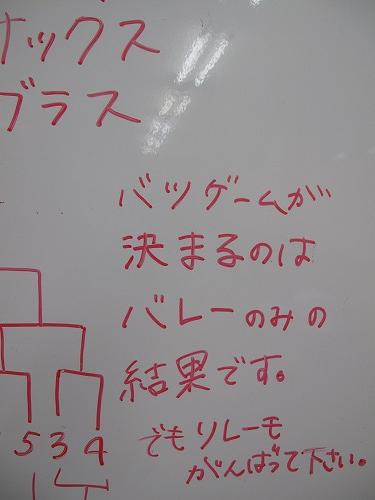 ナックス
ブラス
バツゲームが
決まるのは
バレーのみの
結果です。
5 3 4
でもリレーモ
がんばって下さい。